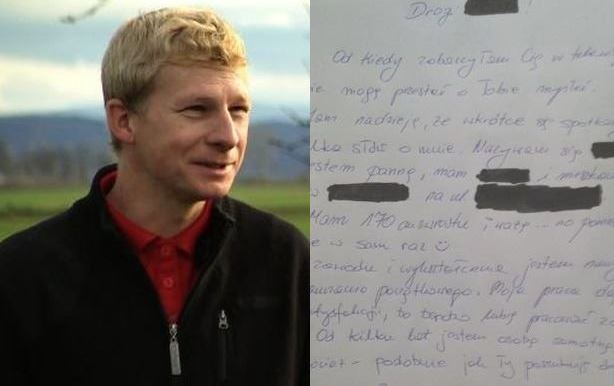 Drog !
Od kiedy zobaczyłam Cię w
nie mogę przestać o Tobie myśleć.
Mam nadzieję, że wkrótce się
słów o mnie. Nazywam się
jestem panną, mam , mieszkam
w na ul
Mam 170 cm wzrostu i ważę ... no
w sam raz ☺
zawodu i wykształcenia jestem
nauczania początkowego. Moja praca
satysfakcji, to bardzo lubię pracować z
Od kilku lat jestem osobą samotną
- podobnie jak Ty poszukuję